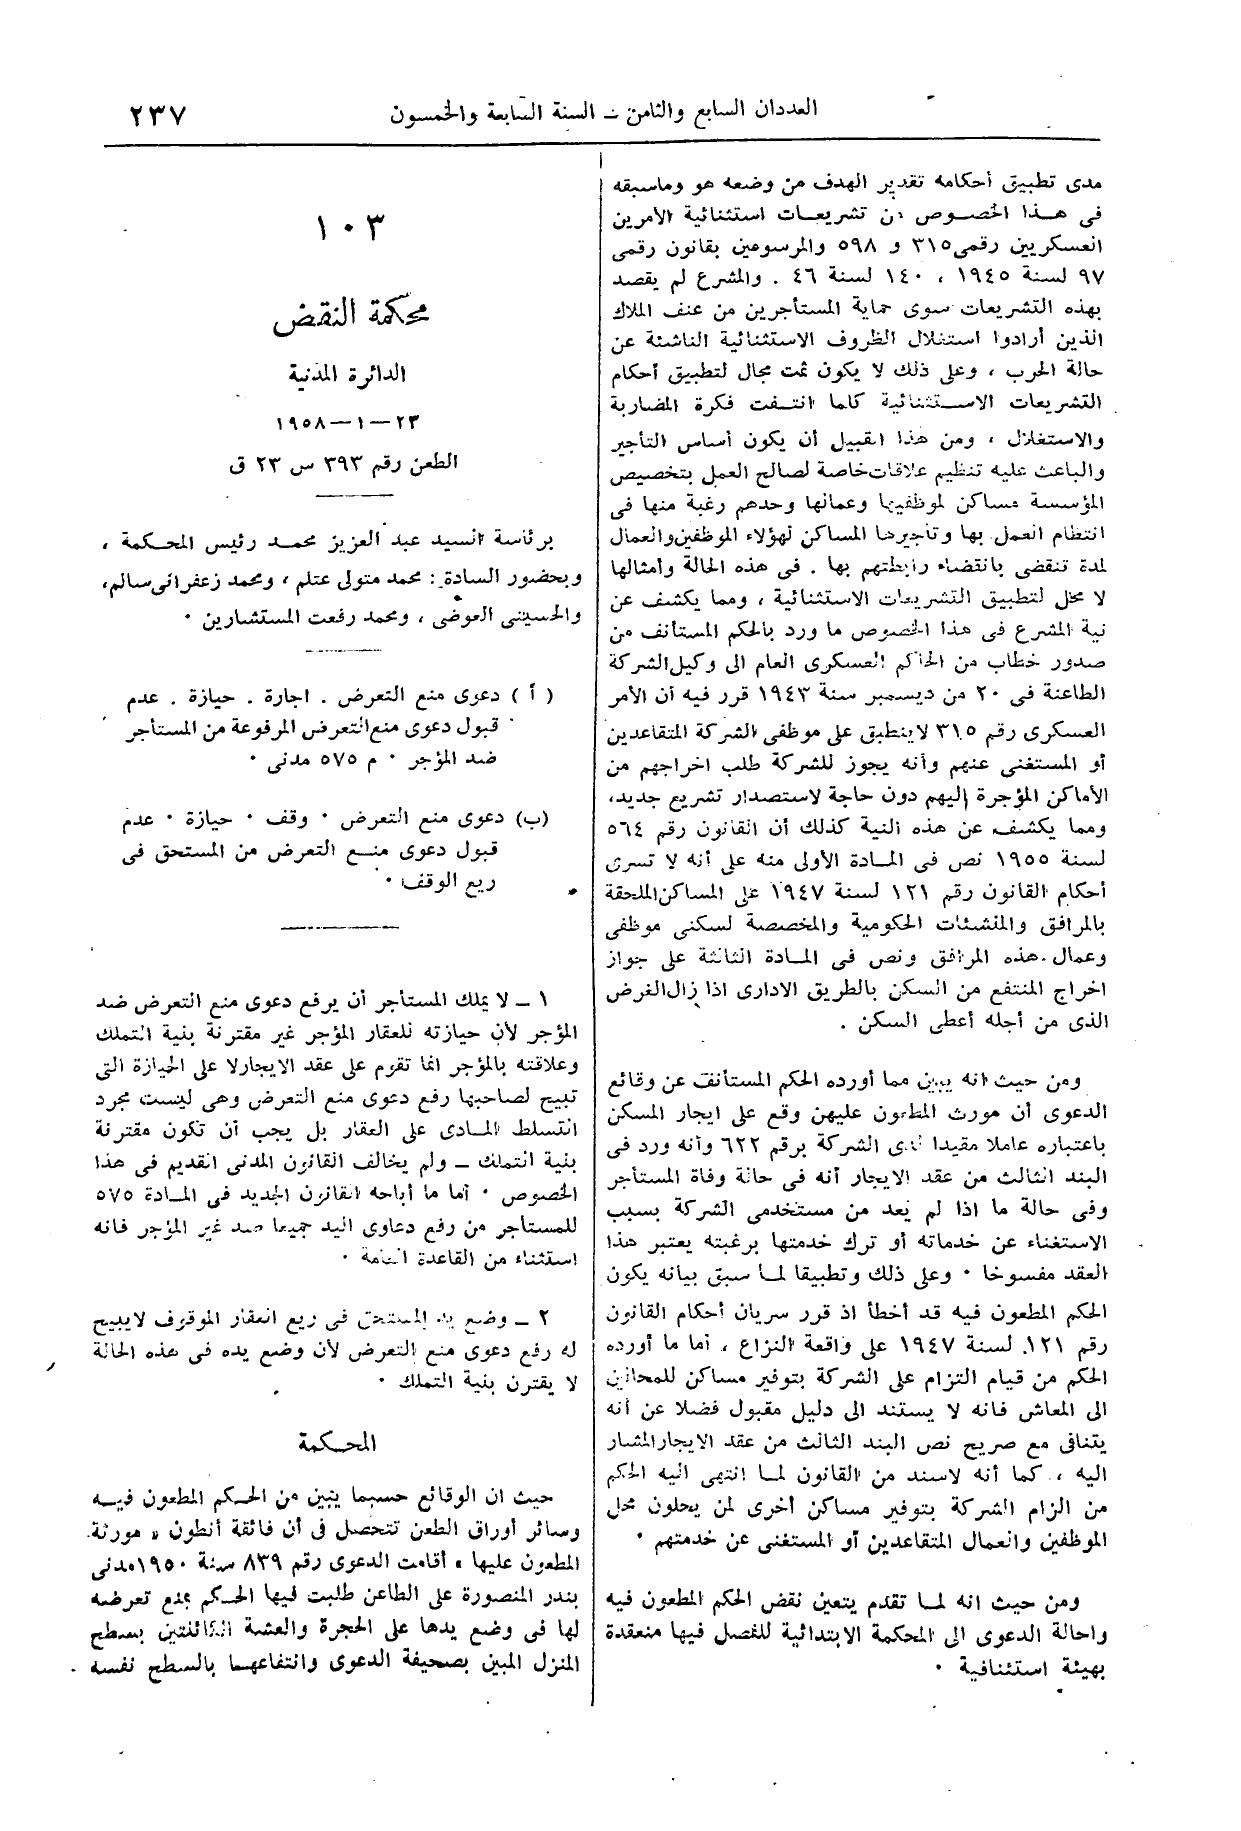 العددان السابع والثامن – السنة السابعة والخمسون
٢٣٧
مدى تطبيق أحكامه تقدير الهدف من وضعه هو وماسبقه
فى هذا الخصوص من تشريعات استثنائية الأمرين
العسكريين رقمى ٣١٥ و ٥٩٨ والمرسومين بقانون رقمى
٩٧ لسنة ١٩٤٥ ، ١٤٠ لسنة ٤٦ . والمشرع لم يقصد
بهذه التشريعات سوى حماية المستأجرين من عنف الملاك
الذين أرادوا استغلال الظروف الاستثنائية الناشئة عن
حالة الحرب ، وعلى ذلك لا يكون ثمت مجال لتطبيق أحكام
التشريعات الاستثنائية كلما انتفت فكرة المضاربة
والاستغلال ، ومن هذا القبيل أن يكون أساس التأجير
والباعث عليه تنظيم علاقات خاصة لصالح العمل بتخصيص
المؤسسة مساكن لموظفيها وعمالها وحدهم رغبة منها فى
انتظام العمل بها وتأجيرها المساكن لهؤلاء الموظفين والعمال
لمدة تنقضى بانقضاء رابطتهم بها . فى هذه الحالة وأمثالها
لا محل لتطبيق التشريعات الاستثنائية ، ومما يكشف عن
نية المشرع فى هذا الخصوص ما ورد بالحكم المستأنف من
صدور خطاب من الحاكم العسكرى العام الى وكيل الشركة
الطاعنة فى ٢٠ من ديسمبر سنة ١٩٤٣ قرر فيه أن الأمر
العسكرى رقم ٣١٥ لاينطبق على موظفى الشركة المتقاعدين
أو المستغنى عنهم وأنه يجوز للشركة طلب اخراجهم من
الأماكن المؤجرة إليهم دون حاجة لاستصدار تشريع جديد،
ومما يكشف عن هذه النية كذلك أن القانون رقم ٥٦٤
لسنة ١٩٥٥ نص فى المادة الأولى منه على أنه لا تسرى
أحكام القانون رقم ١٢١ لسنة ١٩٤٧ على المساكن الملحقة
بالمرافق والمنشئات الحكومية والمخصصة لسكنى موظفى
وعمال هذه المرافق ونص فى المادة الثالثة على جواز
اخراج المنتفع من السكن بالطريق الادارى اذا زال الغرض
الذى من أجله أعطى السكن .
ومن حيث انه يبين مما أورده الحكم المستأنف عن وقائع
الدعوى أن مورث المطعون عليهن وقع على ايجار المسكن
باعتباره عاملا مقيدا لدى الشركة برقم ٦٢٢ وأنه ورد فى
البند الثالث من عقد الايجار أنه فى حالة وفاة المستأجر
وفى حالة ما اذا لم يعد من مستخدمى الشركة بسبب
الاستغناء عن خدماته أو ترك خدمتها برغبته يعتبر هذا
العقد مفسوخا . وعلى ذلك وتطبيقا لما سبق بيانه يكون
الحكم المطعون فيه قد أخطأ اذ قرر سريان أحكام القانون
رقم ١٢١ لسنة ١٩٤٧ على واقعة النزاع ، أما ما أورده
الحكم من قيام التزام على الشركة بتوفير مساكن للمحالين
الى المعاش فانه لا يستند الى دليل مقبول فضلا عن أنه
يتنافى مع صريح نص البند الثالث من عقد الايجار المشار
اليه ، كما أنه لاسند من القانون لما انتهى اليه الحكم
من الزام الشركة بتوفير مساكن أخرى لمن يحلون محل
الموظفين والعمال المتقاعدين أو المستغنى عن خدمتهم .
ومن حيث انه لما تقدم يتعين نقض الحكم المطعون فيه
واحالة الدعوى الى المحكمة الابتدائية للفصل فيها منعقدة
بهيئة استئنافية .
١٠٣
محكمة النقض
الدائرة المدنية
٢٣ – ١ – ١٩٥٨
الطعن رقم ٣٩٣ س ٢٣ ق
برئاسة السيد عبد العزيز محمد رئيس المحكمة ،
وبحضور السادة : محمد متولى عتلم ، ومحمد زعفرانى سالم،
والحسينى العوضى ، ومحمد رفعت المستشارين .
( أ ) دعوى منع التعرض . اجارة . حيازة . عدم
قبول دعوى منع التعرض المرفوعة من المستأجر
ضد المؤجر . م ٥٧٥ مدنى .
(ب) دعوى منع التعرض . وقف . حيازة . عدم
قبول دعوى منع التعرض من المستحق فى
ريع الوقف .
١ – لا يملك المستأجر أن يرفع دعوى منع التعرض ضد
المؤجر لأن حيازته للعقار المؤجر غير مقترنة بنية التملك
وعلاقته بالمؤجر انما تقوم على عقد الايجار لا على الحيازة التى
تبيح لصاحبها رفع دعوى منع التعرض وهى ليست مجرد
التسلط المادى على العقار بل يجب أن تكون مقترنة
بنية التملك – ولم يخالف القانون المدنى القديم فى هذا
الخصوص . أما ما أباحه القانون الجديد فى المادة ٥٧٥
للمستأجر من رفع دعاوى اليد جميعا ضد غير المؤجر فانه
استثناء من القاعدة العامة .
٢ – وضع يد المستحق فى ريع العقار الموقوف لايبيح
له رفع دعوى منع التعرض لأن وضع يده فى هذه الحالة
لا يقترن بنية التملك .
المحكمة
حيث ان الوقائع حسبما يتبين من الحكم المطعون فيه
وسائر أوراق الطعن تتحصل فى أن فائقة أنطون « مورثة
المطعون عليها » أقامت الدعوى رقم ٨٣٩ سنة ١٩٥٠ مدنى
بندر المنصورة على الطاعن طلبت فيها الحكم بمنع تعرضه
لها فى وضع يدها على الحجرة والعشة الكائنتين بسطح
المنزل المبين بصحيفة الدعوى وانتفاعها بالسطح نفسه